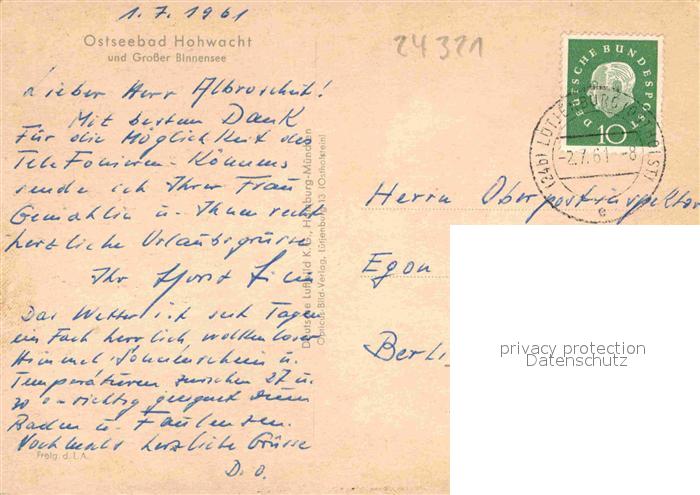 1.7.1961
Ostseebad Hohwacht
und Großer Binnensee
24321
DEUTSCHE BUNDESPOST
10
(24b) LÜTJENBURG (OSTHOLST)
-2.7.61 -8
e
Lieber Herr Albroscheit!
Mit bestem Dank
Für die Möglichkeit des
Telefonieren-Könnens
sende ich Ihrer Frau
Gemahlin u. Ihnen recht
herzliche Urlaubsgrüsse
Ihr Horst
Das Wetter ist seit Tagen
einfach herrlich, wolkenloser
Himmel, Sonnenschein u.
Temperaturen zwischen 27 u.
30 - richtig geeignet zum
Baden u. Faulenzen.
Nochmals herzliche Grüsse
D. O.
Freig. d. L.A.
Deutsche Luftbild K.G., Hamburg-München
Opticus-Bild-Verlag, Lütjenburg 13 (Ostholstein)
Herrn Oberpostinspektor
Egon
Berli
privacy protection
Datenschutz